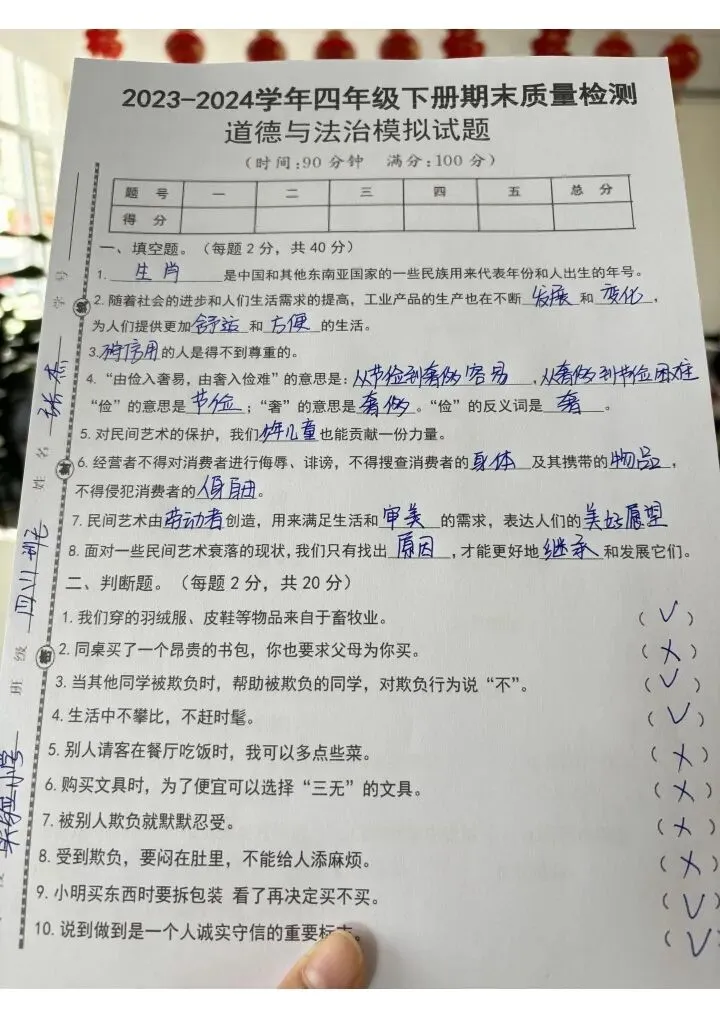 2023-2024学年四年级下册期末质量检测
道德与法治模拟试题
(时间:90分钟 满分:100分)
题 号 一 二 三 四 五 总 分
得 分
一、填空题。(每题2分，共40分)
1. 生肖 是中国和其他东南亚国家的一些民族用来代表年份和人出生的年号。
2. 随着社会的进步和人们生活需求的提高，工业产品的生产也在不断 发展 和 变化，
为人们提供更加 舒适 和 方便 的生活。
3. 信用的人是得不到尊重的。
4. “由俭入奢易，由奢入俭难”的意思是：从节俭到奢侈容易，从奢侈到节俭困难
“俭”的意思是 节俭；“奢”的意思是 奢侈。“俭”的反义词是 奢。
5. 对民间艺术的保护，我们 少年儿童 也能贡献一份力量。
6. 经营者不得对消费者进行侮辱、诽谤，不得搜查消费者的 身体 及其携带的 物品，
不得侵犯消费者的 人身自由。
7. 民间艺术由 劳动者 创造，用来满足生活和 审美 的需求，表达人们的 美好愿望
8. 面对一些民间艺术衰落的现状，我们只有找出 原因，才能更好地 继承 和发展它们。
二、判断题。(每题2分，共20分)
1. 我们穿的羽绒服、皮鞋等物品来自于畜牧业。 (✓)
2. 同桌买了一个昂贵的书包，你也要求父母为你买。 (×)
3. 当其他同学被欺负时，帮助被欺负的同学，对欺负行为说“不”。 (✓)
4. 生活中不攀比，不赶时髦。 (✓)
5. 别人请客在餐厅吃饭时，我可以多点些菜。 (×)
6. 购买文具时，为了便宜可以选择“三无”的文具。 (×)
7. 被别人欺负就默默忍受。 (×)
8. 受到欺负，要闷在肚里，不能给人添麻烦。 (×)
9. 小明买东西时要拆包装 看了再决定买不买。 (✓)
10. 说到做到是一个人诚实守信的重要标志。 (✓)
学 号
姓 名 张杰
班 级 四(1)班
实验小学